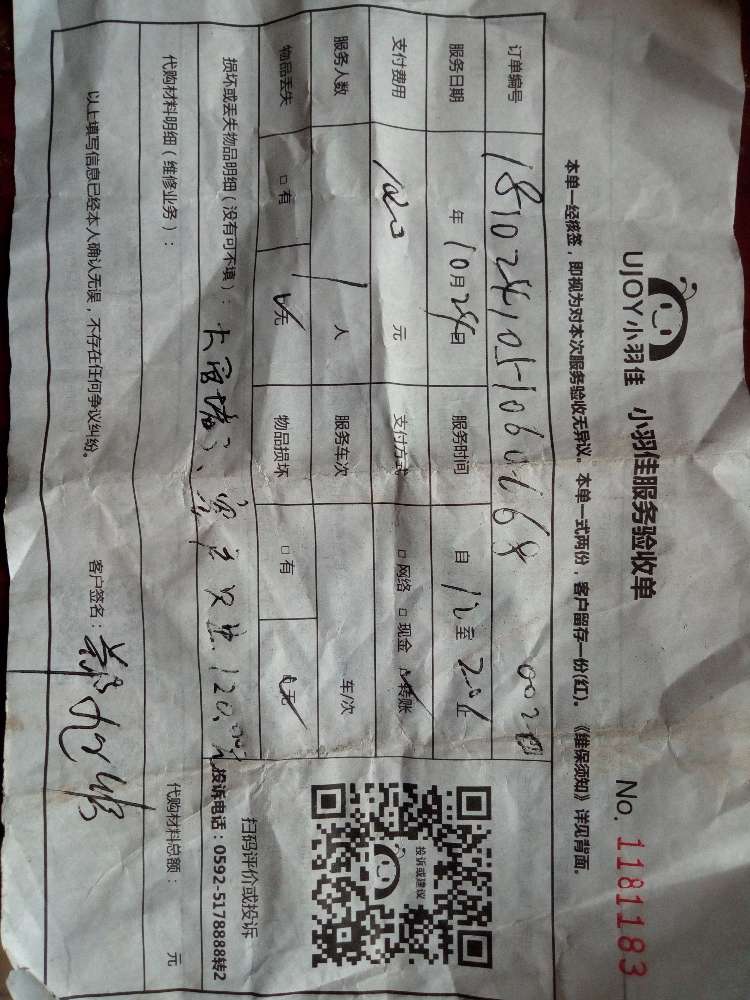 UJOY小羽佳 小羽佳服务验收单 No. 1181183
本单一经核签，即视为对本次服务验收无异议。本单一式两份，客户留存一份(红)。《维保须知》详见背面。
订单编号
服务日期 年 10月 24日 服务时间 自 12 至 201 止
支付费用 元 支付方式 □ 网络 □ 现金 ☑ 转账
服务人数 1 人 服务车次 车/次
物品丢失 □ 有 ☑ 无 物品损坏 □ 有 ☑ 无
损坏或丢失物品明细（没有可不填）：
代购材料明细（维修业务）： 代购材料总额： 元
以上填写信息已经本人确认无误，不存在任何争议纠纷。 客户签名：
投诉或建议
扫码评价或投诉
投诉电话：0592-5178888转2